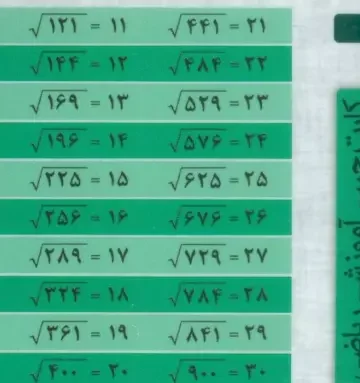 √۱۲۱ = ۱۱ √۴۴۱ = ۲۱
√۱۴۴ = ۱۲ √۴۸۴ = ۲۲
√۱۶۹ = ۱۳ √۵۲۹ = ۲۳
√۱۹۶ = ۱۴ √۵۷۶ = ۲۴
√۲۲۵ = ۱۵ √۶۲۵ = ۲۵
√۲۵۶ = ۱۶ √۶۷۶ = ۲۶
√۲۸۹ = ۱۷ √۷۲۹ = ۲۷
√۳۲۴ = ۱۸ √۷۸۴ = ۲۸
√۳۶۱ = ۱۹ √۸۴۱ = ۲۹
√۴۰۰ = ۲۰ √۹۰۰ = ۳۰